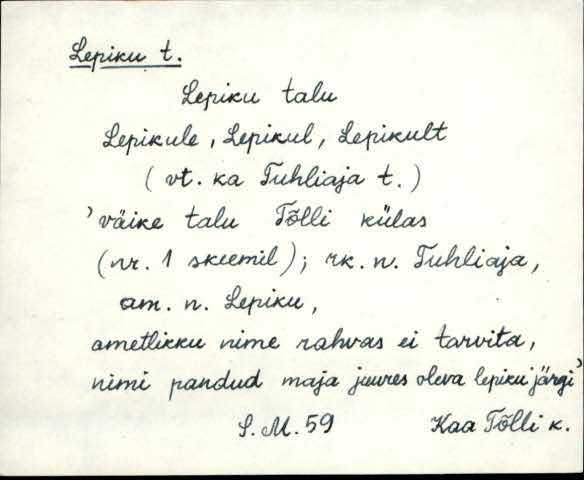 Lepiku t.
Lepiku talu
Lepikule, Lepikul, Lepikult
(vt. ka Tuhliaja t.)
'väike talu Tõlli külas
(nr. 1 skeemil); rk. n. Tuhliaja,
am. n. Lepiku,
ametlikku nime rahvas ei tarvita,
nimi pandud maja juures oleva lepiku järgi'
S. M. 59 Kaa Tõlli k.